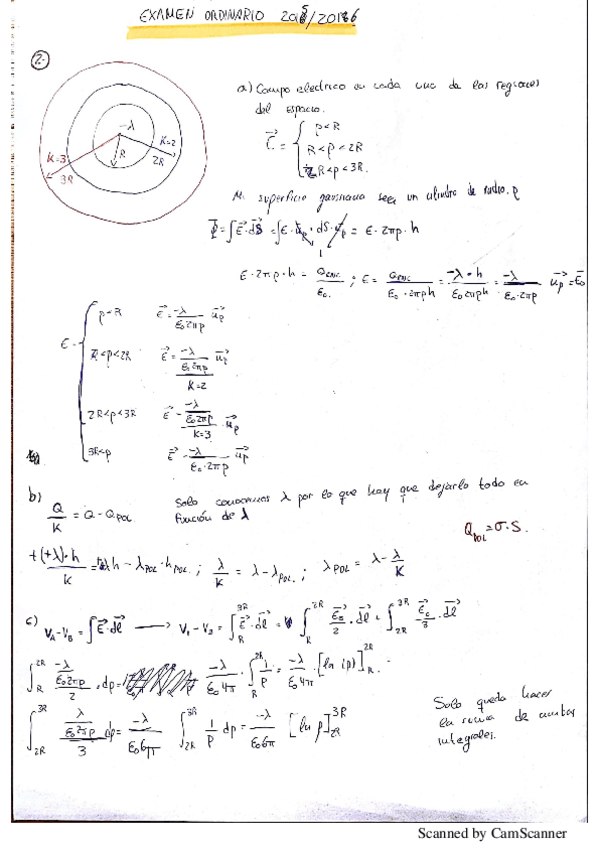 EXAMEN ORDINARIO 2015/2016
2.
-λ
K=3
K=2
R
2R
3R
a) Campo electrico en cada una de las regiones
del espacio.
ρ<R
R<ρ<2R
2R<ρ<3R.
Mi superficie gaussiana sera un cilindro de radio ρ
Φ = ∫E·dS = ∫E·u_ρ·dS·u_ρ = E·2πρ·h
1
E·2πρ·h = Q_enc/ε₀ ; E = Q_enc/(ε₀·2πρh) = -λ·h/(ε₀2πρh) = -λ/(ε₀·2πρ) u_ρ = E₀
E =
ρ<R E = -λ/(ε₀2πρ) u_ρ
R<ρ<2R E = (-λ/(ε₀2πρ))/(K=2) u_ρ
2R<ρ<3R E = (-λ/(ε₀2πρ))/(K=3) · u_ρ
3R<ρ E = -λ/(ε₀·2πρ) u_ρ
b) Q/K = Q - Q_POL
Solo conocemos λ por lo que hay que dejarlo todo en
función de λ
Q_POL = σ·S.
+(+λ)·h/K = λh - λ_POL·h_POL ; λ/K = λ - λ_POL ; λ_POL = λ - λ/K
c) V_A-V_B = ∫E·dl → V₁-V₂ = ∫_R^3R E·dl = ∫_R^2R E₀/2·dl + ∫_2R^3R E₀/3·dl
∫_R^2R (-λ/(ε₀2πρ))/2 · dρ = -λ/(ε₀4π) · ∫_R^2R 1/ρ = -λ/(ε₀4π) · [ln(ρ)]_R^2R
∫_2R^3R (λ/(ε₀2πρ))/3 dρ = -λ/(ε₀6π) ∫_2R^3R 1/ρ dρ = -λ/(ε₀6π) [ln ρ]_2R^3R
Solo queda hacer
la suma de ambas
integrales.
Scanned by CamScanner